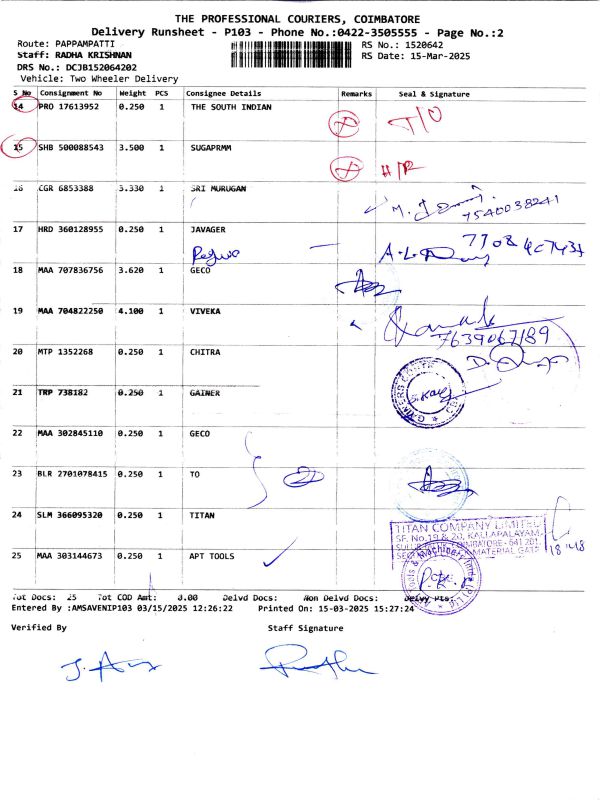 THE PROFESSIONAL COURIERS, COIMBATORE
Delivery Runsheet - P103 - Phone No.:0422-3505555 - Page No.:2
Route: PAPPAMPATTI RS No.: 1520642
Staff: RADHA KRISHNAN RS Date: 15-Mar-2025
DRS No.: DCJB152064202
Vehicle: Two Wheeler Delivery
S No Consignment No Weight PCS Consignee Details Remarks Seal & Signature
14 PRO 17613952 0.250 1 THE SOUTH INDIAN T/O
15 SHB 500088543 3.500 1 SUGAPRMM H/R
16 CGR 6853388 3.330 1 SRI MURUGAN
7540038241
17 HRD 360128955 0.250 1 JAVAGER
18 MAA 707836756 3.620 1 GECO
19 MAA 704822250 4.100 1 VIVEKA
7639067189
20 MTP 1352268 0.250 1 CHITRA
21 TRP 738182 0.250 1 GAINER
22 MAA 302845110 0.250 1 GECO
23 BLR 2701078415 0.250 1 TO
24 SLM 366095320 0.250 1 TITAN
TITAN COMPANY LIMITED
SF. No.19 & 20, KALLAPALAYAM,
COIMBATORE - 641 201.
MATERIAL GATE
25 MAA 303144673 0.250 1 APT TOOLS
Tot Docs: 25 Tot COD Amt: 0.00 Delvd Docs: Non Delvd Docs: Delvy Pts:
Entered By :AMSAVENIP103 03/15/2025 12:26:22 Printed On: 15-03-2025 15:27:24
Verified By Staff Signature